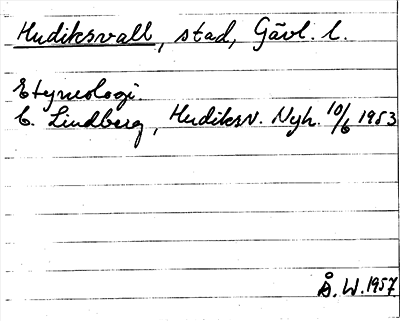 Hudiksvall, stad, Gävl. l.
Etymologi.
C. Lindberg, Hudiksv. Nyh. 10/6 1953
Å. W. 1957